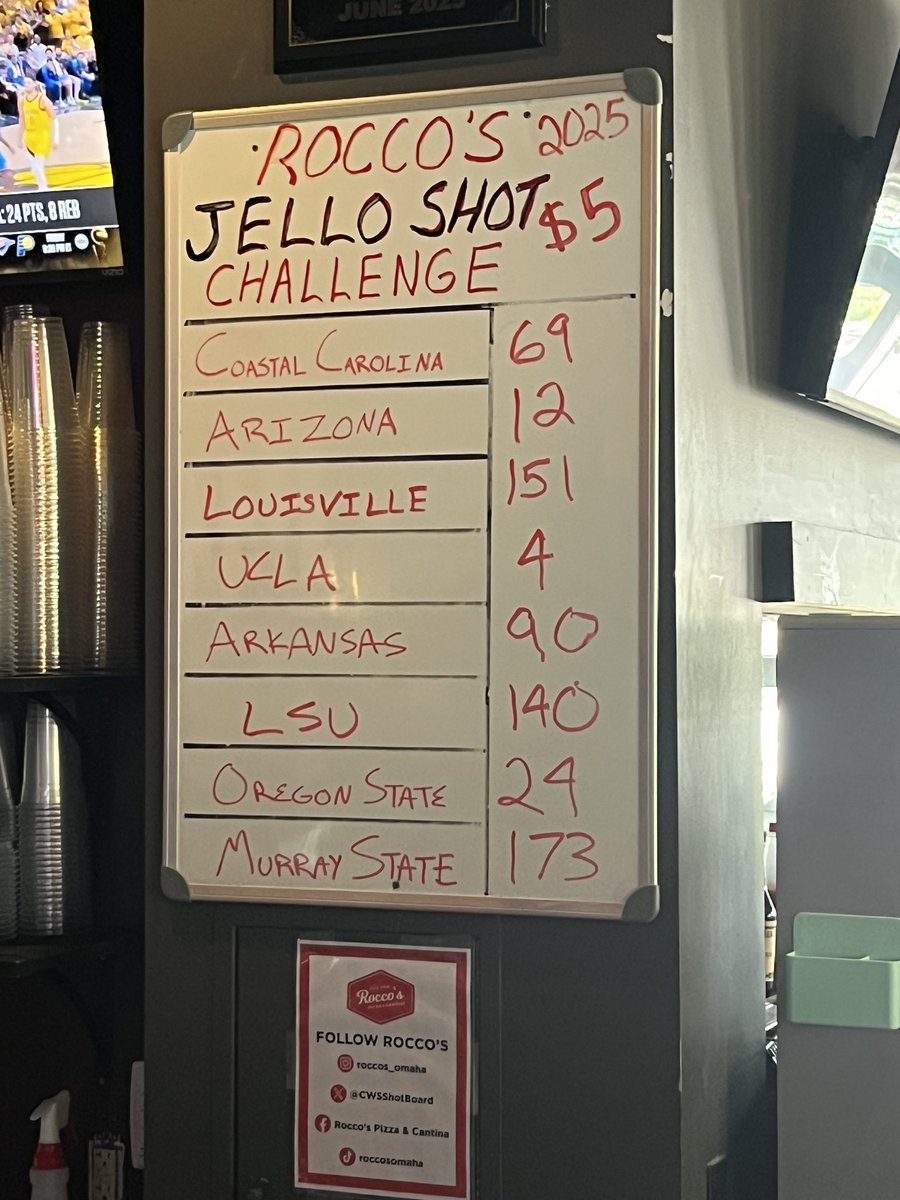 JUNE 2025
ROCCO'S 2025
JELLO SHOT $5
CHALLENGE
COASTAL CAROLINA 69
ARIZONA 12
LOUISVILLE 151
UCLA 4
ARKANSAS 90
LSU 140
OREGON STATE 24
MURRAY STATE 173
: 24 PTS, 8 REB
VIZIO
Rocco's
FOLLOW ROCCO'S
roccos_omaha
@CWSShotBoard
Rocco's Pizza & Cantina
roccosomaha